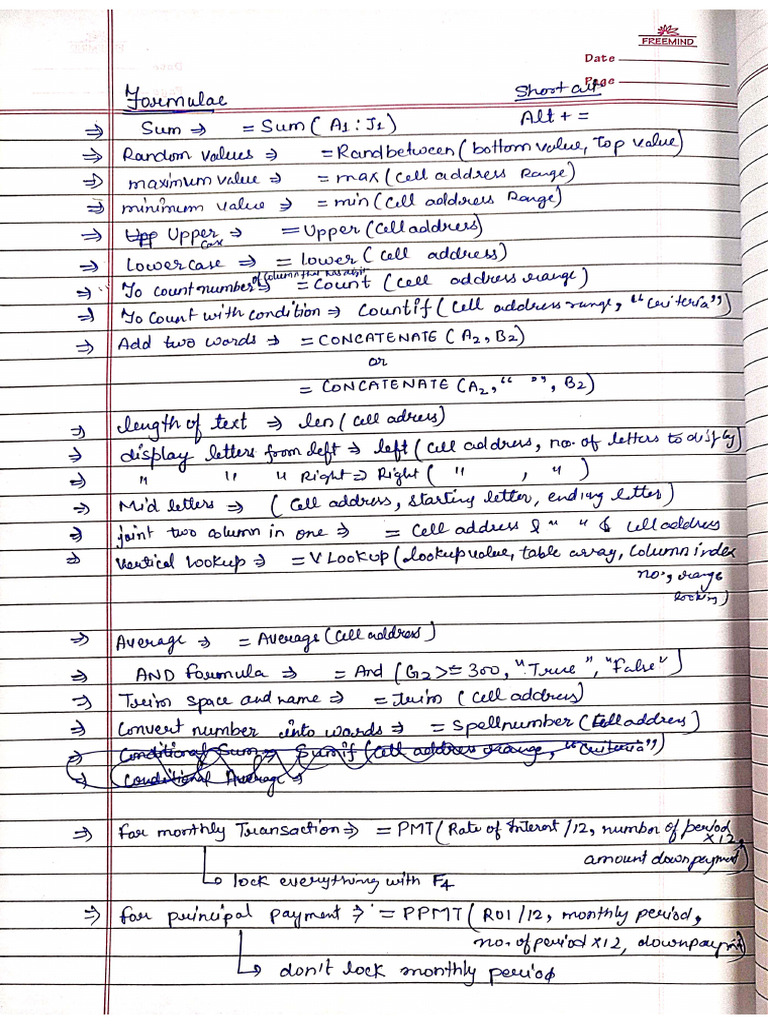 FREEMIND
Date
Page
Formulae Short cut
⇒ Sum ⇒ = Sum ( A1 : J1 ) Alt + =
⇒ Random values ⇒ = Randbetween ( bottom value, Top value)
⇒ maximum value ⇒ = max ( cell address Range)
⇒ minimum value ⇒ = min ( cell address Range)
⇒ Upp Upper case ⇒ = Upper (Cell address)
⇒ Lowercase ⇒ = lower ( cell address)
⇒ To count number of column that has digit ⇒ = Count ( cell address range )
⇒ To Count with condition ⇒ Countif ( cell address range, "criteria")
⇒ Add two words ⇒ = CONCATENATE ( A2, B2)
or
= CONCATENATE (A2, " ", B2)
⇒ length of text ⇒ len ( cell adress)
⇒ display letters from left ⇒ left ( cell address, no. of letters to disply)
⇒ " " " Right ⇒ Right ( " , " )
⇒ Mid letters ⇒ ( cell address, starting letter, ending letter)
⇒ joint two column in one ⇒ = cell address & " " & cell address
⇒ vertical lookup ⇒ = VLookup ( lookup value, table array, column index
no., range
locking)
⇒ Average ⇒ = Average (Cell address)
⇒ AND formula ⇒ = And ( G2 >= 300, "True", "False")
⇒ Trim space and name ⇒ = trim ( cell address)
⇒ Convert number into words ⇒ = Spellnumber ( Cell address)
⇒ Conditional Sum ⇒ Sumif ( cell address range, "criteria")
⇒ Conditional Average ⇒
⇒ For monthly Transaction ⇒ = PMT ( Rate of Interst /12, number of period
×12,
amount downpayment)
lock everything with F4
⇒ for principal payment ⇒ = PPMT ( ROI /12, monthly period,
no. of period ×12, downpaymnt)
don't lock monthly period